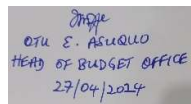 OTU E. ASUQUO
HEAD OF BUDGET OFFICE
27/04/2024